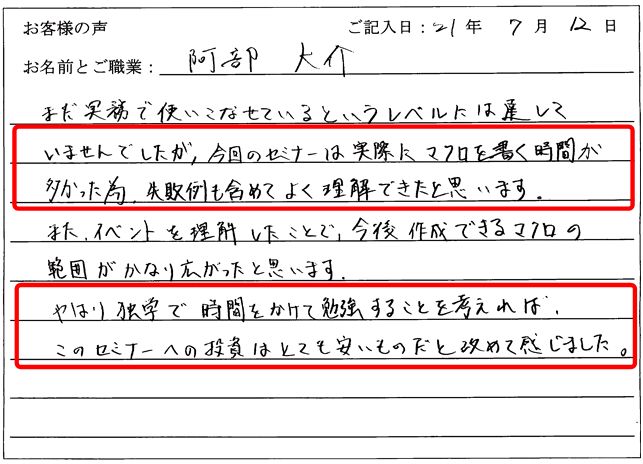 お客様の声 ご記入日：21年 7月 12日
お名前とご職業： 阿部 大介
まだ実務で使いこなせているというレベルには達して
いませんでしたが、今回のセミナーは実際にマクロを書く時間が
多かった為、失敗例も含めてよく理解できたと思います。
また、イベントを理解したことで、今後作成できるマクロの
範囲がかなり広がったと思います。
やはり独学で時間をかけて勉強することを考えれば、
このセミナーへの投資はとても安いものだと改めて感じました。